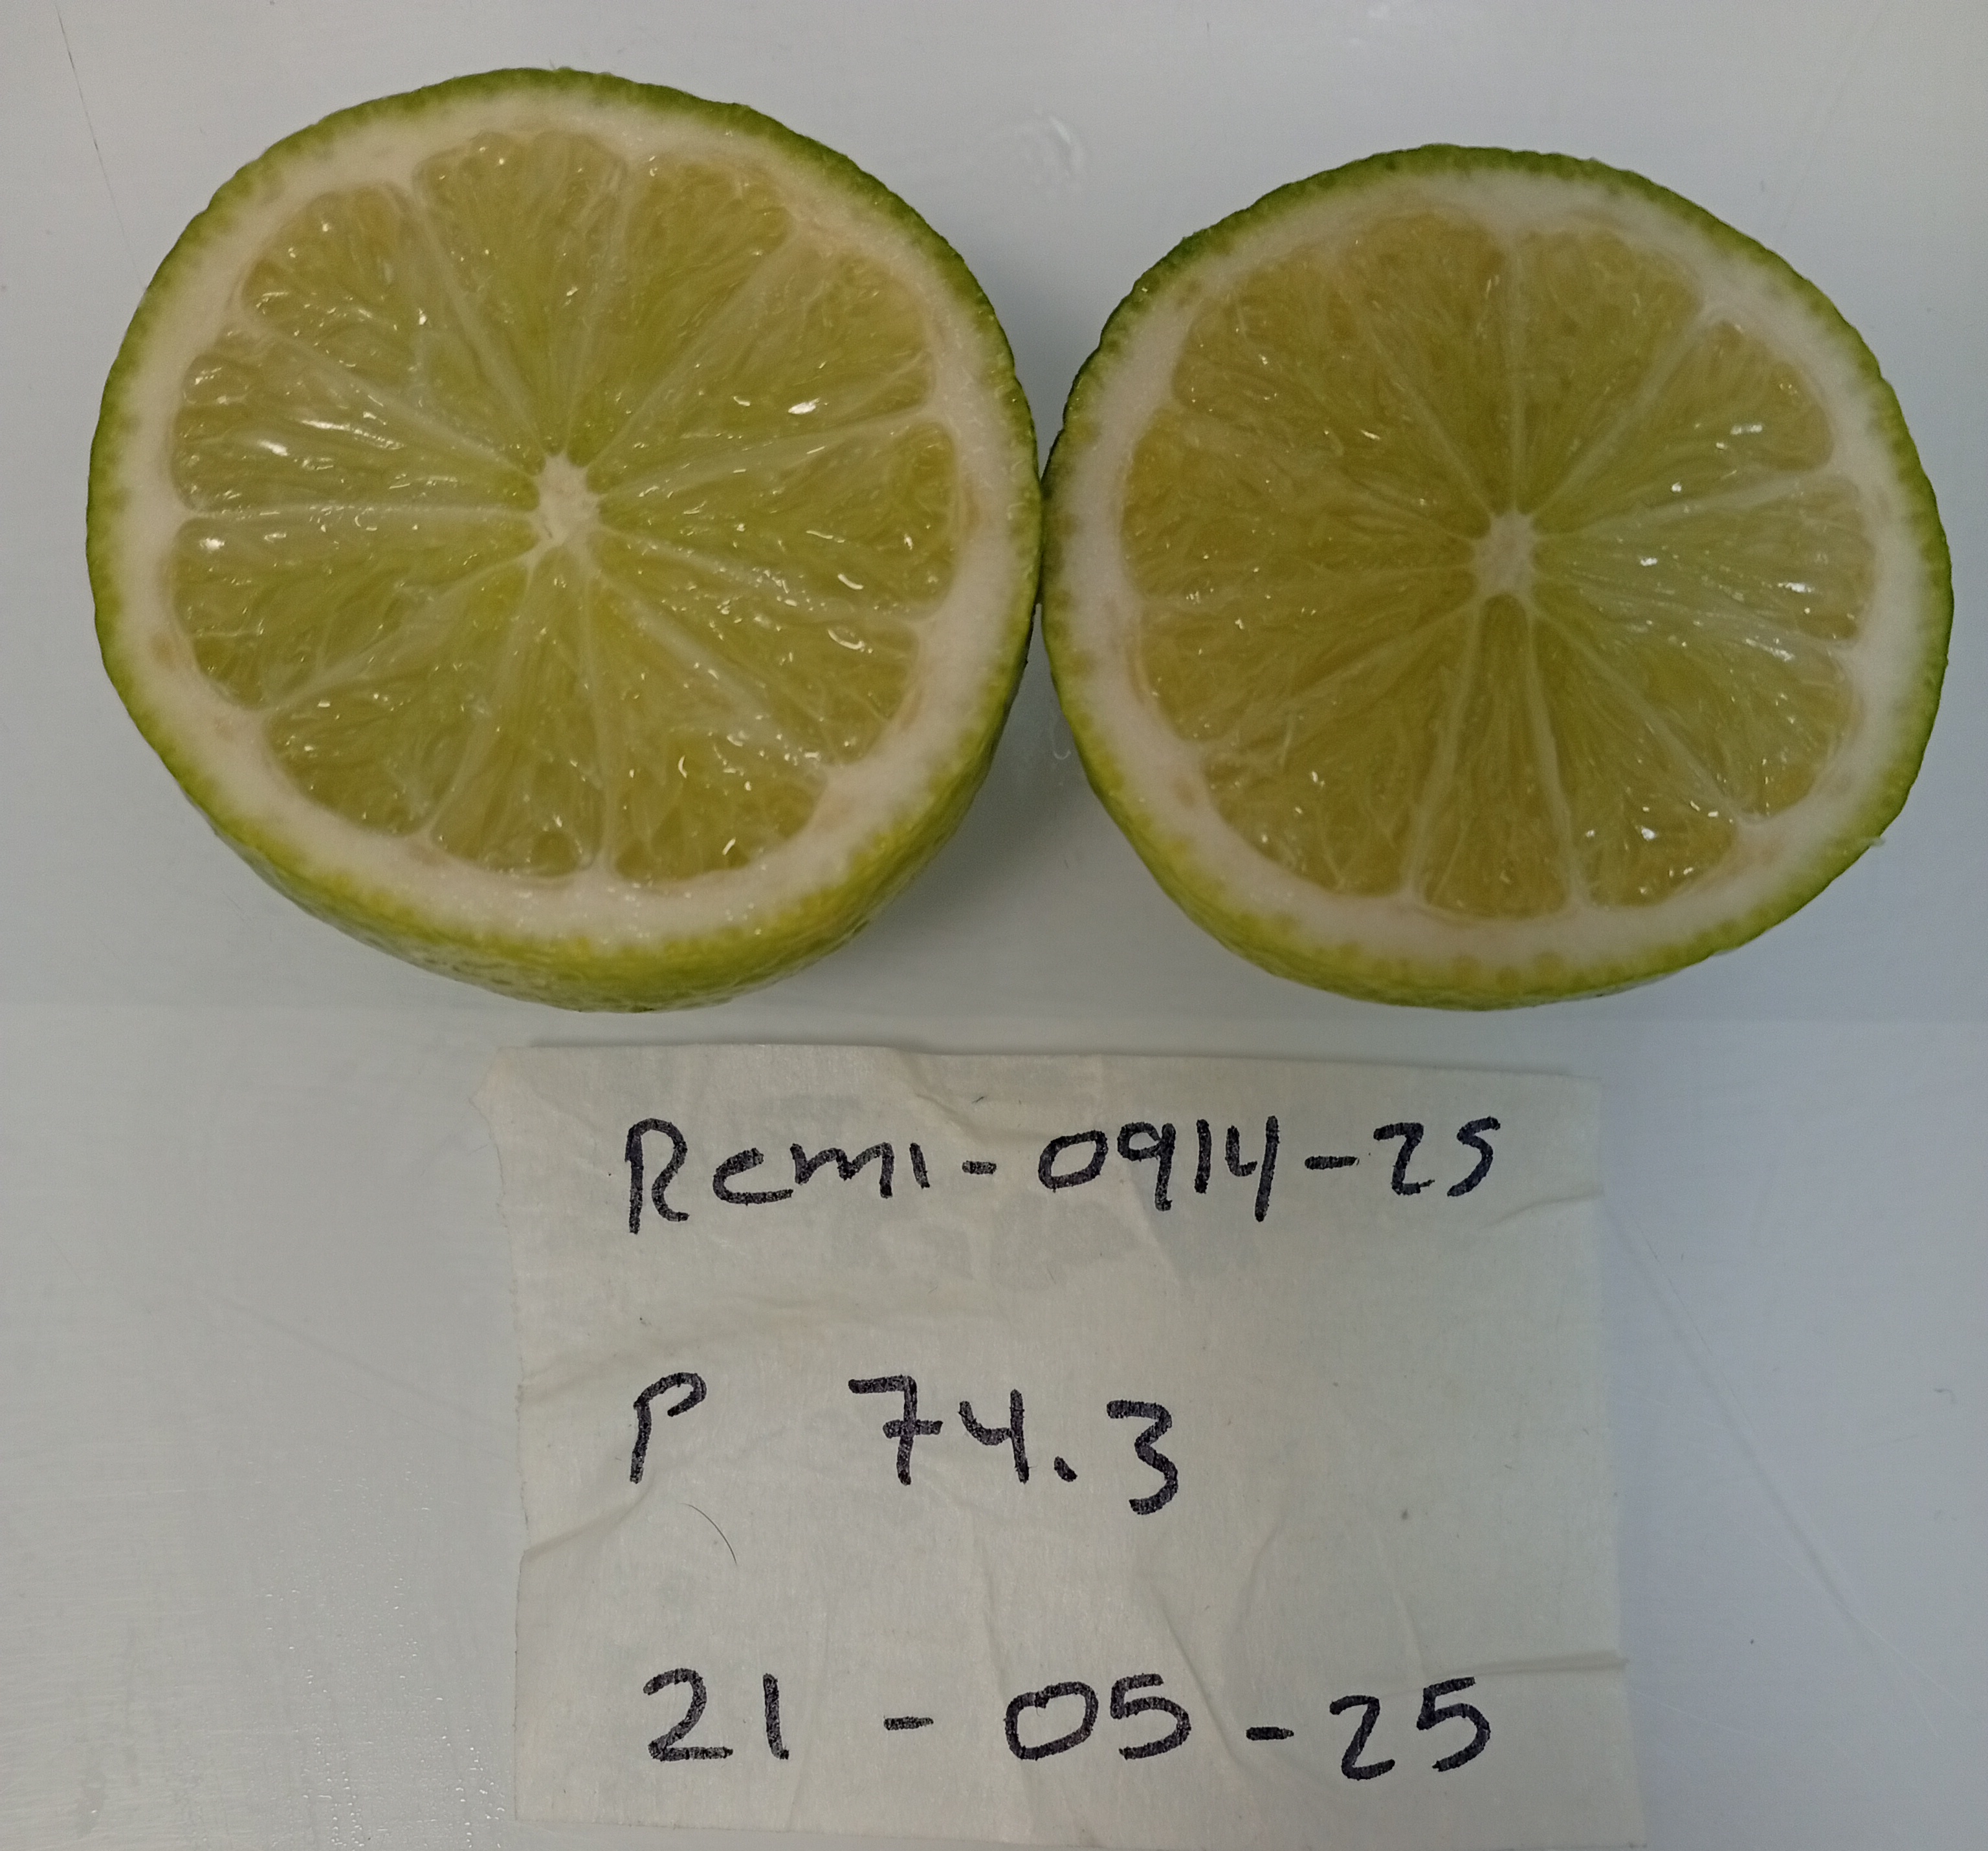 Remi-0914-25
P 74.3
21-05-25